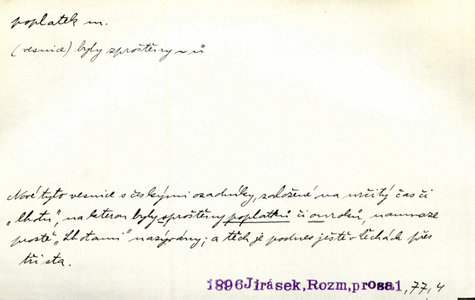 poplatek m.
(vesnice) byly zproštěny ~ů
Nové tyto vesnice s českými osadníky, založené na určitý čas či
„lhotu", na kterou byly zproštěny poplatků či ourоků, namnoze
prostě „Lhotami" nazývány; a těch je podnes ještě v Čechách přes
tři sta.
1896 Jirásek, Rozm, prosa1, 77, 4